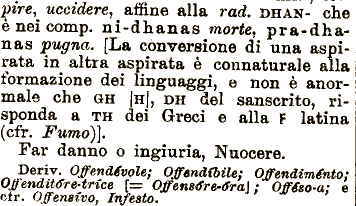 pire, uccidere, affine alla rad. DHAN- che
è nei comp. ni-dhanas morte, pra-dha-
nas pugna. [La conversione di una aspi-
rata in altra aspirata è connaturale alla
formazione dei linguaggi, e non è anor-
male che GH [H], DH del sanscrito, ri-
sponda a TH dei Greci e alla F latina
(cfr. Fumo)].
Far danno o ingiuria, Nuocere.
Deriv. Offendévole; Offendíbile; Offendiménto;
Offenditóre-tríce [= Offensóre-óra]; Offéso-a; e
cfr. Offensívo, Infesto.